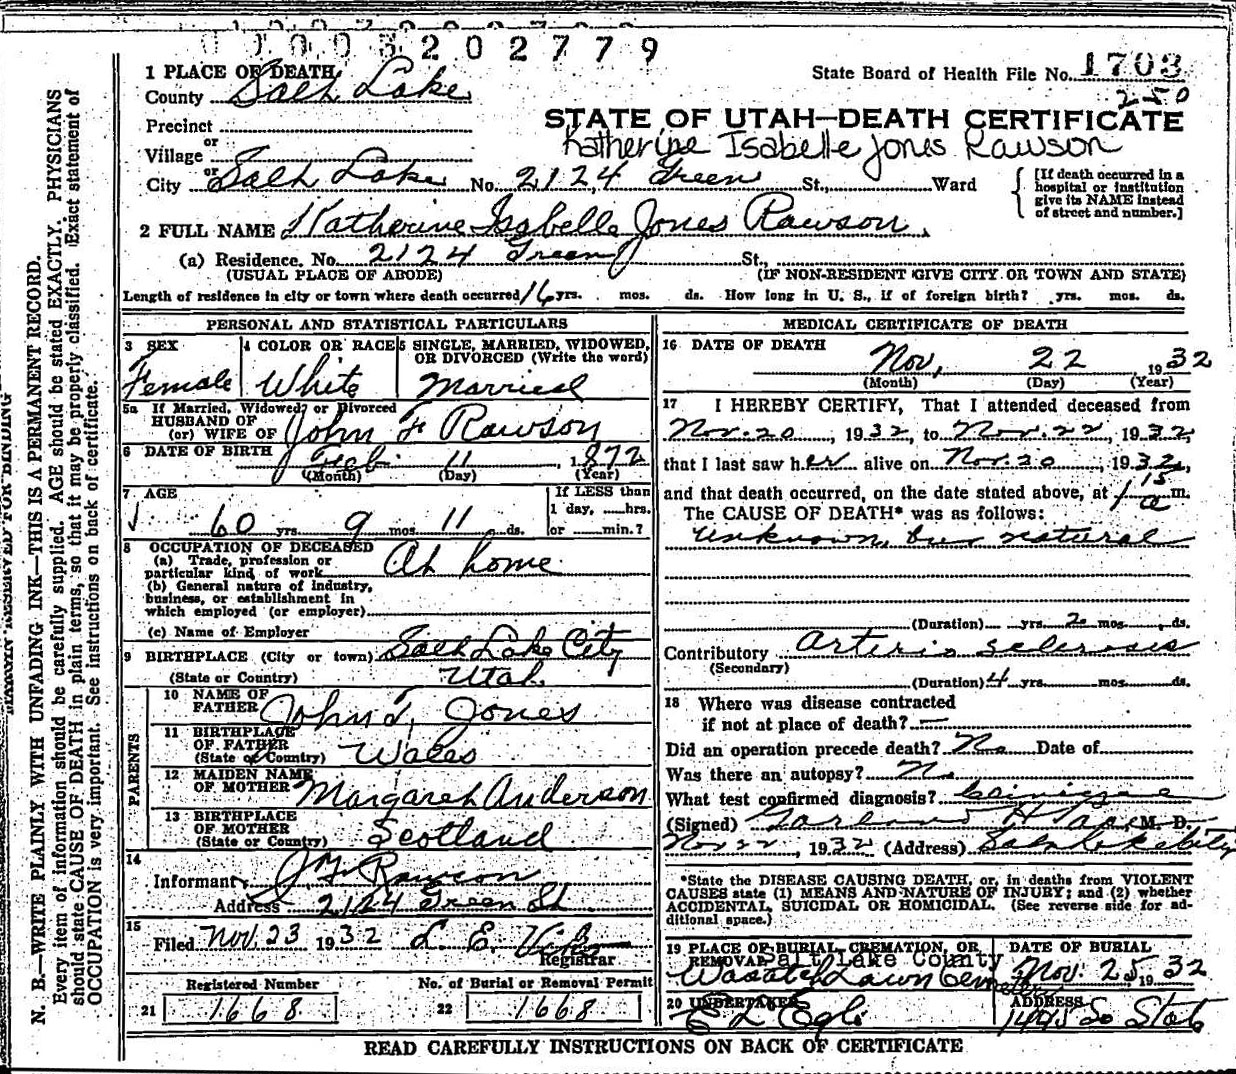 0 0 0 0 3 2 0 2 7 7 9
1 PLACE OF DEATH
County Salt Lake
State Board of Health File No. 1703
250
Precinct
STATE OF UTAH—DEATH CERTIFICATE
Katherine Isabelle Jones Rawson
or
Village
or
City Salt Lake No. 2124 Green St., Ward
[If death occurred in a
hospital or institution
give its NAME instead
of street and number.]
2 FULL NAME Katherine Isabelle Jones Rawson
(a) Residence. No. 2124 Green St.,
(USUAL PLACE OF ABODE) (IF NON-RESIDENT GIVE CITY OR TOWN AND STATE)
Length of residence in city or town where death occurred 16 yrs. mos. ds. How long in U. S., if of foreign birth? yrs. mos. ds.
PERSONAL AND STATISTICAL PARTICULARS
3 SEX
Female
4 COLOR OR RACE
White
5 SINGLE, MARRIED, WIDOWED,
OR DIVORCED (Write the word)
Married
5a If Married, Widowed, or Divorced
HUSBAND OF
(or) WIFE OF John F Rawson
6 DATE OF BIRTH Feb. 11, 1872
(Month) (Day) (Year)
7 AGE
60 yrs. 9 mos. 11 ds.
If LESS than
1 day, hrs.
or min.?
8 OCCUPATION OF DECEASED
(a) Trade, profession or
particular kind of work At home
(b) General nature of industry,
business, or establishment in
which employed (or employer)
(c) Name of Employer
9 BIRTHPLACE (City or town) Salt Lake City
(State or Country) Utah
PARENTS
10 NAME OF
FATHER John T. Jones
11 BIRTHPLACE
OF FATHER
(State or Country) Wales
12 MAIDEN NAME
OF MOTHER Margaret Anderson
13 BIRTHPLACE
OF MOTHER
(State or Country) Scotland
14
Informant J F Rawson
Address 2124 Green St
15
Filed Nov. 23 1932 L. E.
Registrar
Registered Number
21 1668
No. of Burial or Removal Permit
22 1668
MEDICAL CERTIFICATE OF DEATH
16 DATE OF DEATH
Nov, 22, 1932
(Month) (Day) (Year)
17 I HEREBY CERTIFY, That I attended deceased from
Nov. 20, 1932, to Nov. 22, 1932,
that I last saw her alive on Nov. 20, 1932,
and that death occurred, on the date stated above, at 1 15 a m.
The CAUSE OF DEATH* was as follows:
Unknown, but natural
(Duration) yrs. 2 mos. ds.
Contributory Arterio sclerosis
(Secondary)
(Duration) 4 yrs. mos. ds.
18 Where was disease contracted
if not at place of death? —
Did an operation precede death? No Date of
Was there an autopsy? No
What test confirmed diagnosis?
(Signed) Garland H M. D.
Nov 22, 1932 (Address) Salt Lake City
*State the DISEASE CAUSING DEATH, or, in deaths from VIOLENT
CAUSES state (1) MEANS AND NATURE OF INJURY; and (2) whether
ACCIDENTAL, SUICIDAL OR HOMICIDAL. (See reverse side for ad-
ditional space.)
19 PLACE OF BURIAL, CREMATION, OR
REMOVAL Salt Lake County
Wasatch Lawn Cemetery
DATE OF BURIAL
Nov. 25, 1932
20 UNDERTAKER
E L Egli
ADDRESS
1495 So State
READ CAREFULLY INSTRUCTIONS ON BACK OF CERTIFICATE
MARGIN RESERVED FOR BINDING
N. B.—WRITE PLAINLY WITH UNFADING INK—THIS IS A PERMANENT RECORD.
Every item of information should be carefully supplied. AGE should be stated EXACTLY. PHYSICIANS
should state CAUSE OF DEATH in plain terms, so that it may be properly classified. Exact statement of
OCCUPATION is very important. See instructions on back of certificate.